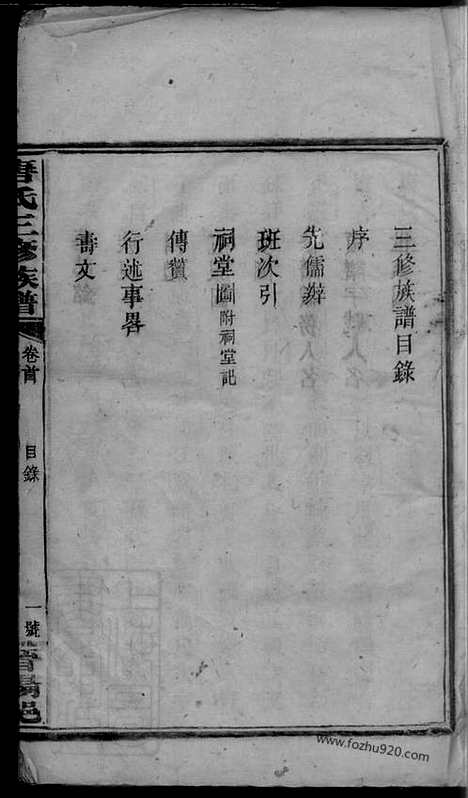 三修族譜目錄
序
先儒辯
班次引
祠堂圖附祠堂記
傳贊
行述事畧
壽文
唐氏三修族譜
卷首
目錄
一號
晉陽邑
www.fozhu920.com